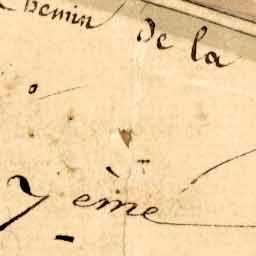 Chemin de la
7ème